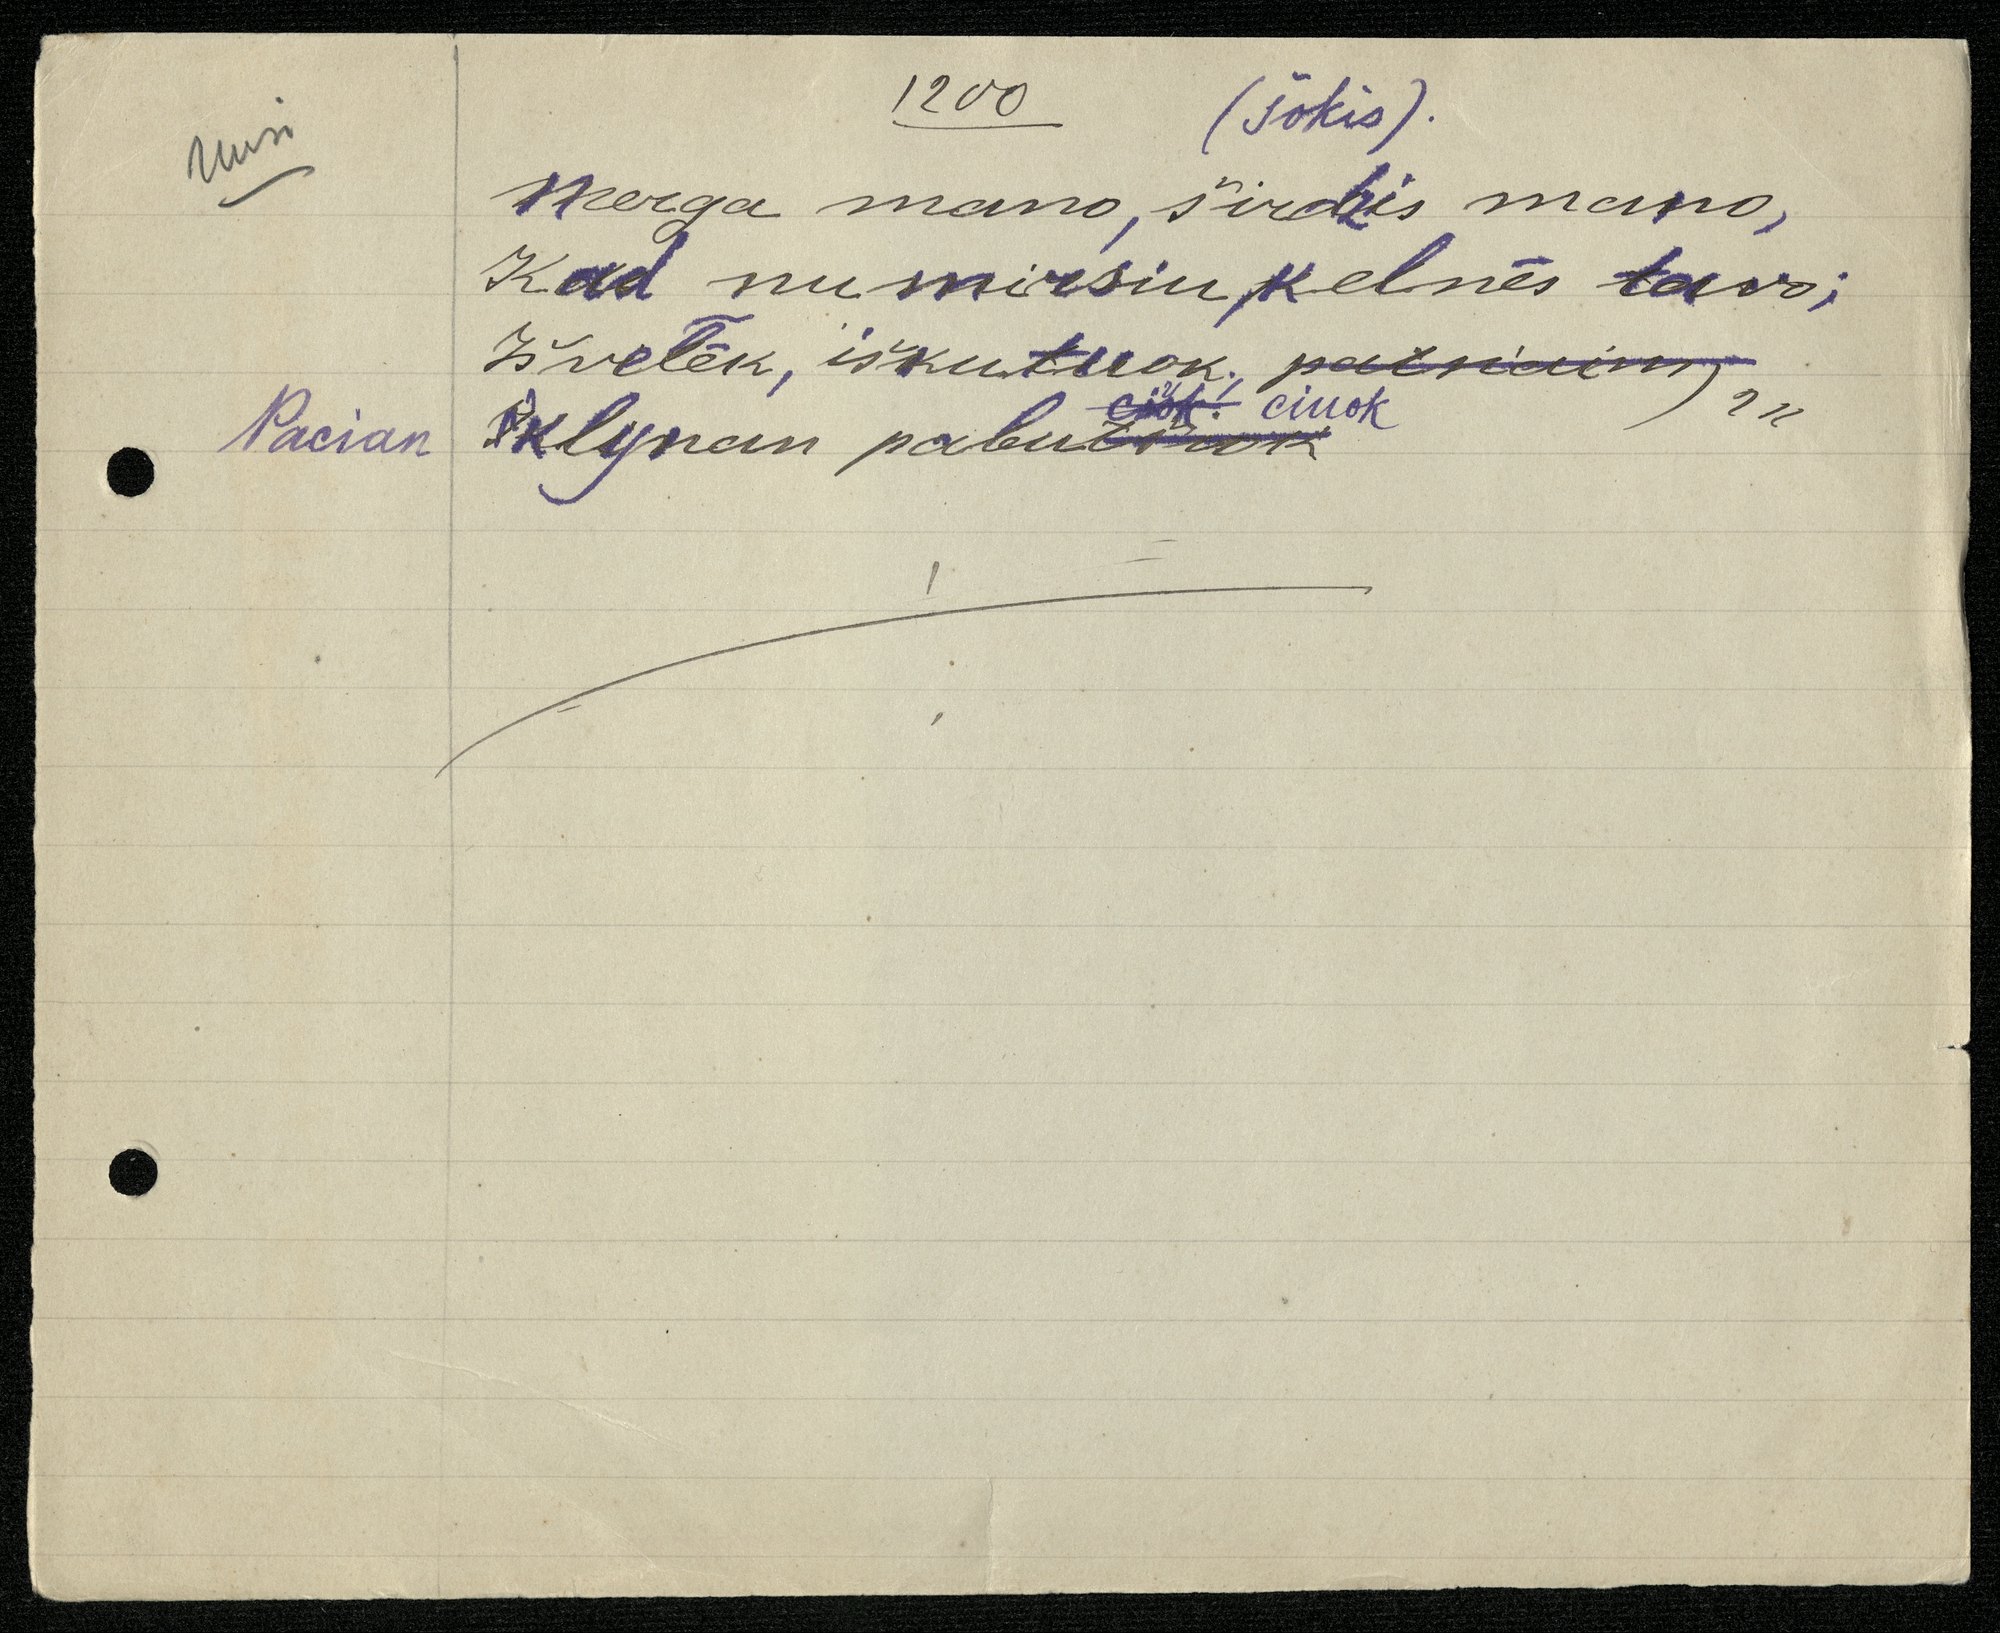 1200 (šokis).
Merga mano, širdis mano,
Kad numirsiu, kelnēs tavo;
Išvelēk, iškutuok,
Pacian iklynan pabu ciuok